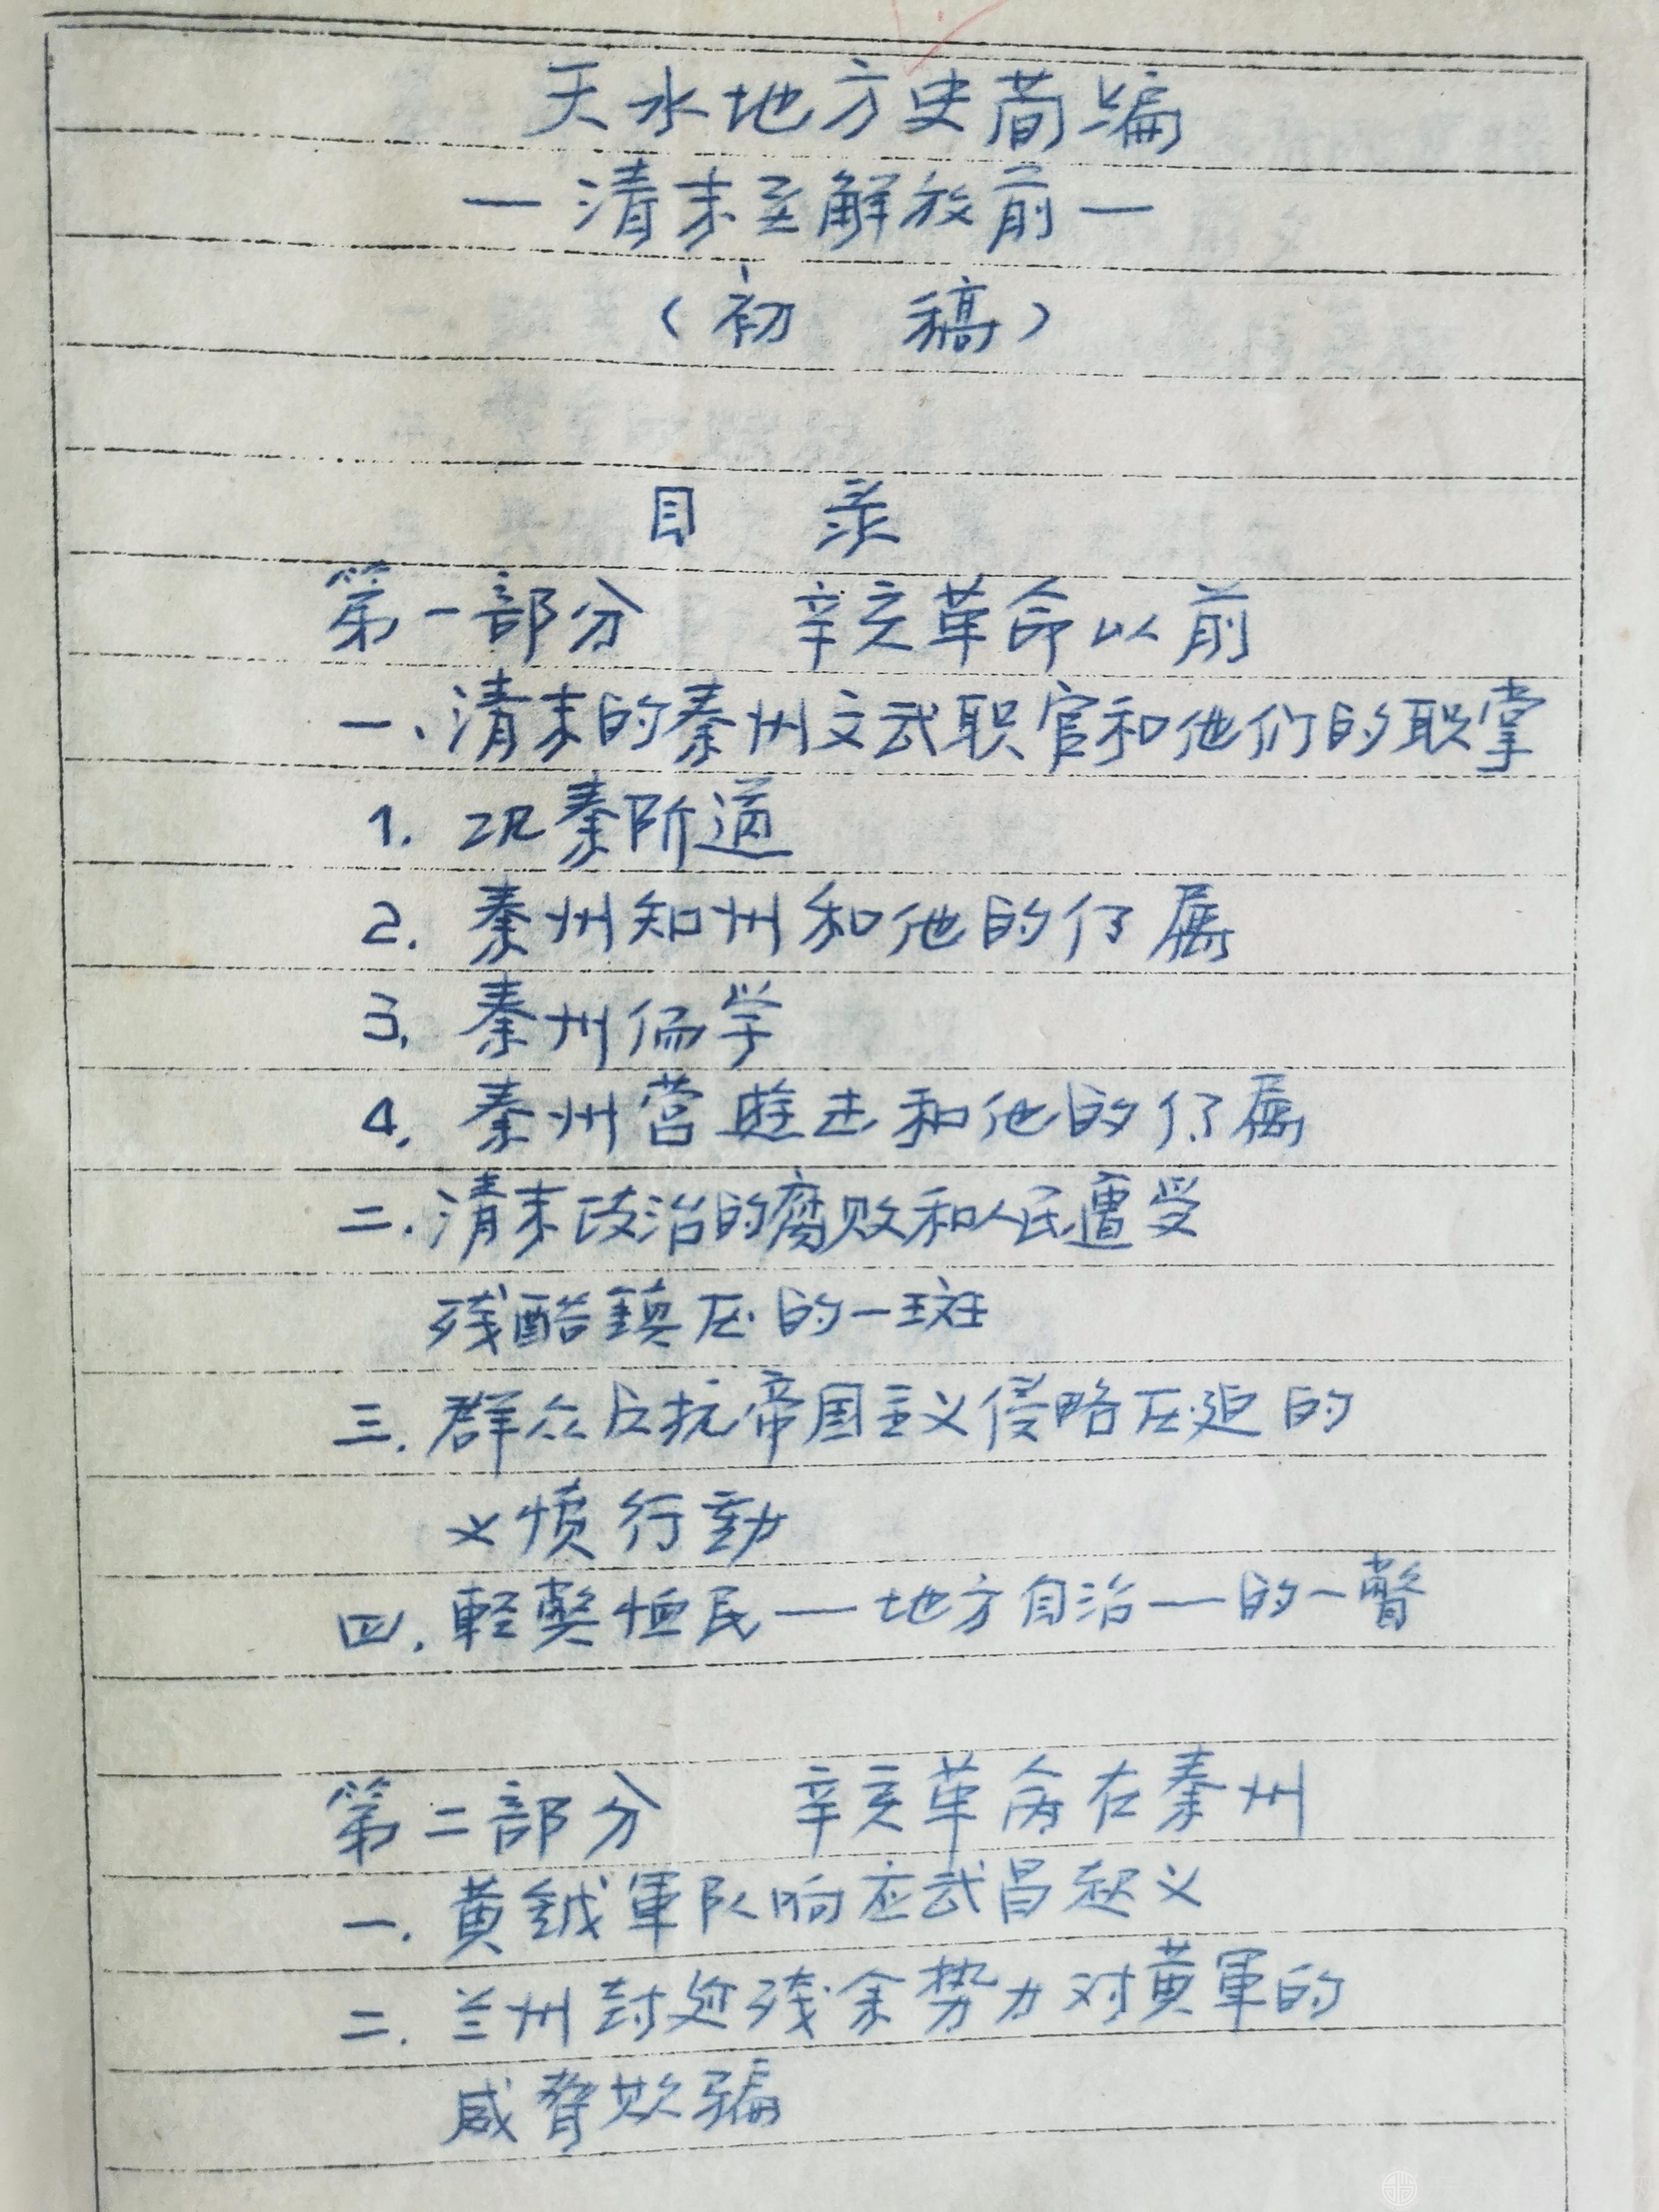 天水地方史简编
—清末至解放前—
（初 稿）
目 录
第一部分 辛亥革命以前
一、清末的秦州文武职官和他们的职掌
1. 巩秦阶道
2. 秦州知州和他的仔属
3. 秦州儒学
4. 秦州营遊击和他的仔属
二. 清末政治的腐败和人民遭受
残酷鎮压的一斑
三. 群众反抗帝国主义侵略压迫的
义愤行動
四. 軽獘恤民——地方自治——的一瞥
第二部分 辛亥革命在秦州
一. 黄鉞軍队响应武昌起义
二. 兰州封建残余势力对黄軍的
威脅欺骗